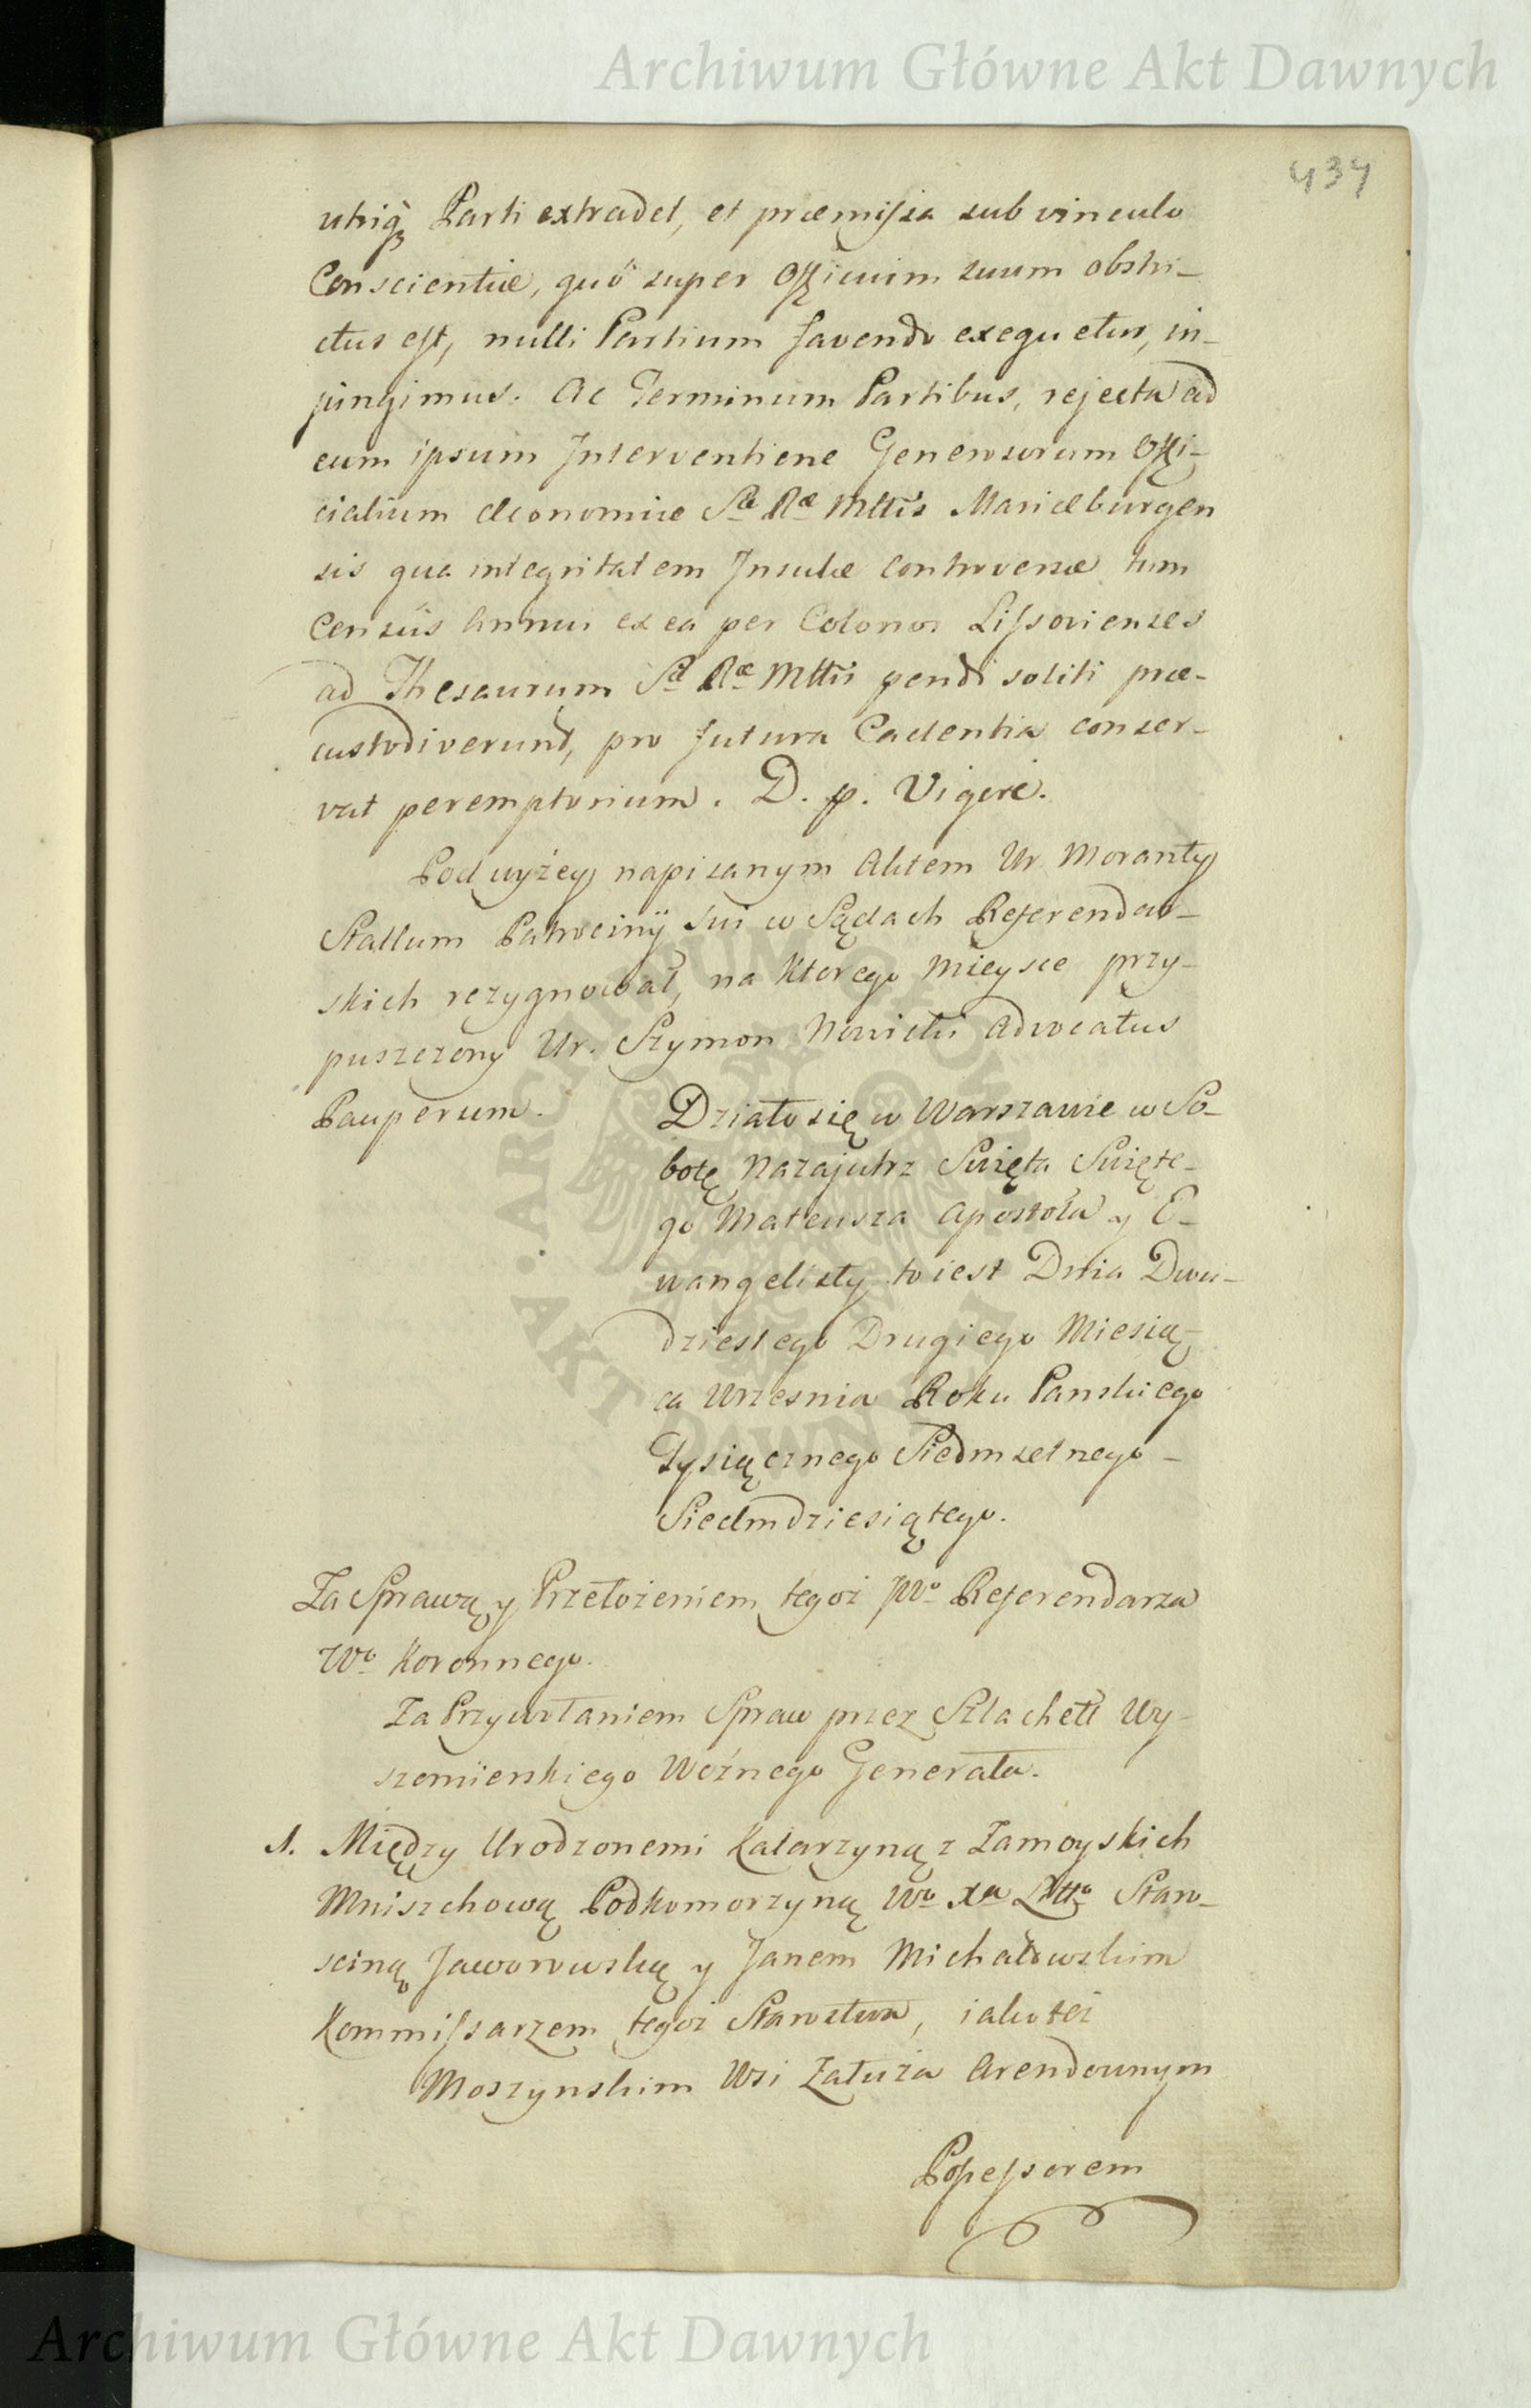 Archiwum Główne Akt Dawnych
437
utriq̃ Parti extradet, et præmissa sub vinculo
Conscientiæ, quô super Officium suum obstri-
ctus est, nulli Partium favendo exequetur, in-
jungimus. Ac Terminum Partibus, rejecta ad
eum ipsum Interventione Generosorum Offi-
cialium Œconomiæ Sæ Ræ Mttis Mariæburgen
sis qua integritatem Insulæ controversæ tum
Censûs Annui ex ea per Colonos Lissovienses
ad Thesaurum Sæ Ræ Mttis pendi soliti præ-
custodiverunt, pro futura Cadentia conser-
vat peremptorium. D. p. Vigore.
Pod wyżey napisanym Aktem Ur. Moranty
Stallum Patrocinÿ sui w Sądach Referendar-
skich rezygnował, na ktorego mieysce przy-
puszczony Ur. Szymon Nowicki Advocatus
Pauperum.
Działo się w Warszawie w So-
botę Nazajutrz Swięta Swięte-
go Mateusza Apostoła y E-
wangelisty to iest Dnia Dwu-
dziestego Drugiego Miesią-
ca Wrzesnia Roku Panskiego
Tysiącznego Siedmsetnego -
Siedmdziesiątego.
Za Sprawą y Przełożeniem tegoż JWo Referendarza
Wo Koronnego.
Za Przywołaniem Spraw przez Szlachett Wy-
szomienskiego Woźnego Generała.
1. Między Urodzonemi Katarzyną z Zamoyskich
Mniszchową Podkomorzyną Wo Xa Litto Staro-
sciną Jaworowską y Janem Michałowskim
Kommissarzem tegoż Starostwa, iako też
Moszynskim Wsi Załuża Arendownym
Possessorem
Archiwum Główne Akt Dawnych